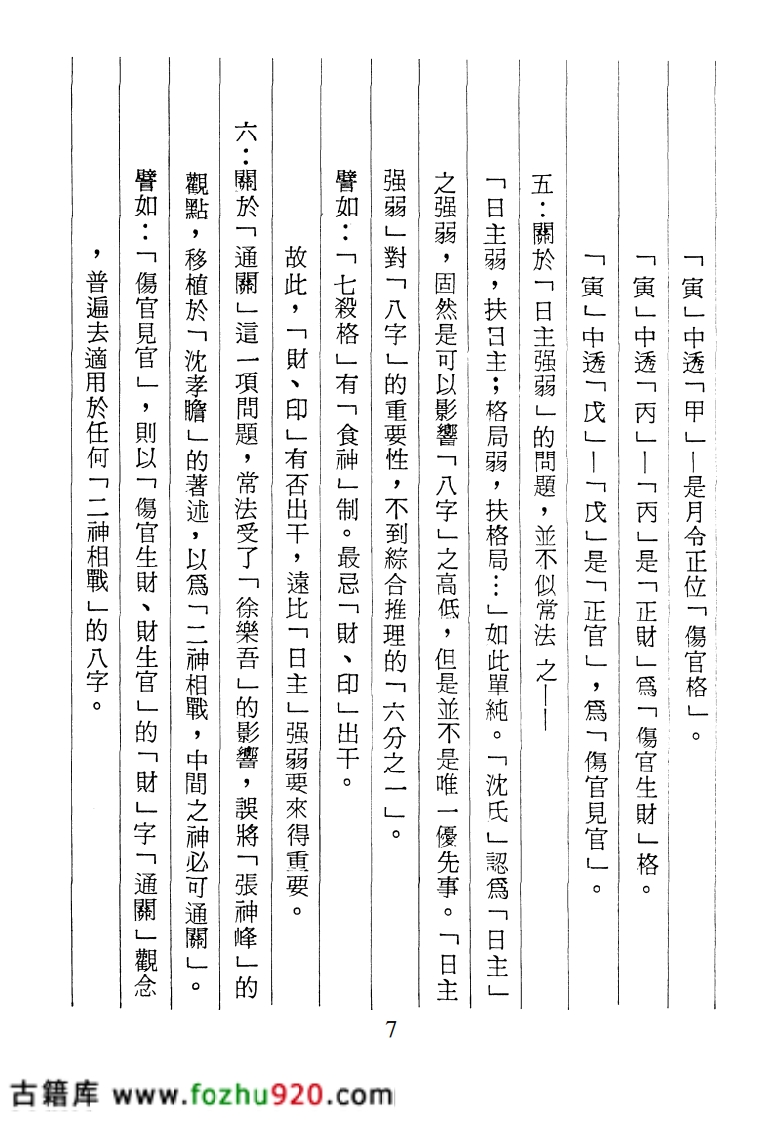 「寅」中透「甲」—是月令正位「傷官格」。
「寅」中透「丙」—「丙」是「正財」爲「傷官生財」格。
「寅」中透「戊」—「戊」是「正官」，爲「傷官見官」。
五：關於「日主强弱」的問題，並不似常法之——
「日主弱，扶日主；格局弱，扶格局…」如此單純。「沈氏」認爲「日主」
之强弱，固然是可以影響「八字」之高低，但是並不是唯一優先事。「日主
强弱」對「八字」的重要性，不到綜合推理的「六分之一」。
譬如：「七殺格」有「食神」制。最忌「財、印」出干。
故此，「財、印」有否出干，遠比「日主」强弱要來得重要。
六：關於「通關」這一項問題，常法受了「徐樂吾」的影響，誤將「張神峰」的
觀點，移植於「沈孝瞻」的著述，以爲「二神相戰，中間之神必可通關」。
譬如：「傷官見官」，則以「傷官生財、財生官」的「財」字「通關」觀念
，普遍去適用於任何「二神相戰」的八字。
7
古籍库 www.fozhu920.com